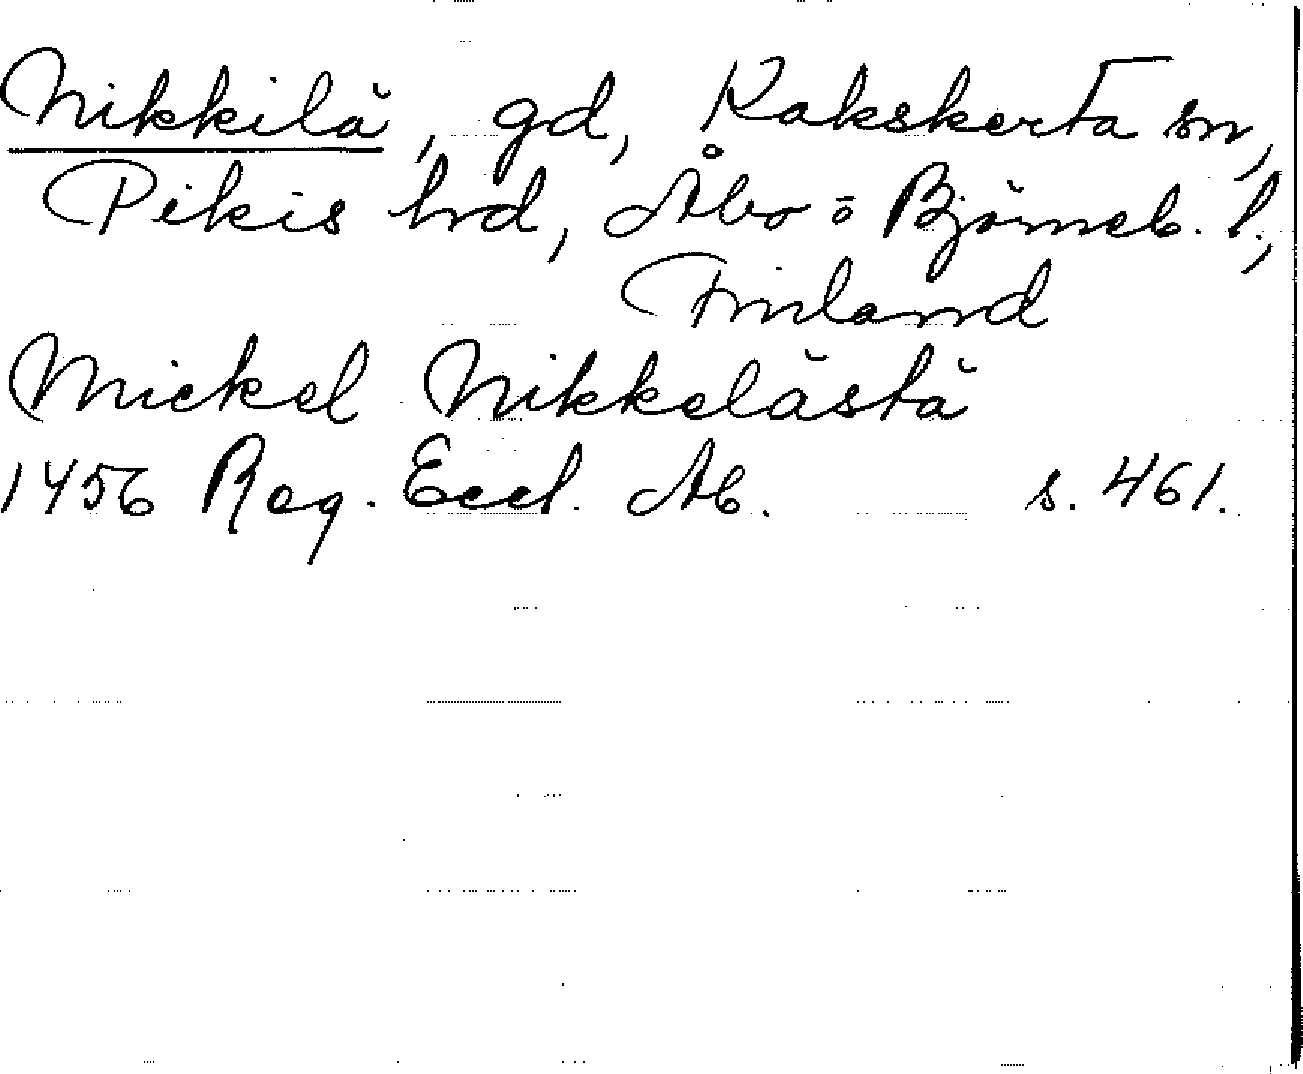 Nikkilä, gd, Kakskerta sn,
Pikis hrd, Åbo o Björneb. l.,
Finland
Mickel Nikkelästä
1456 Reg. Eccl. Ab. s. 461.